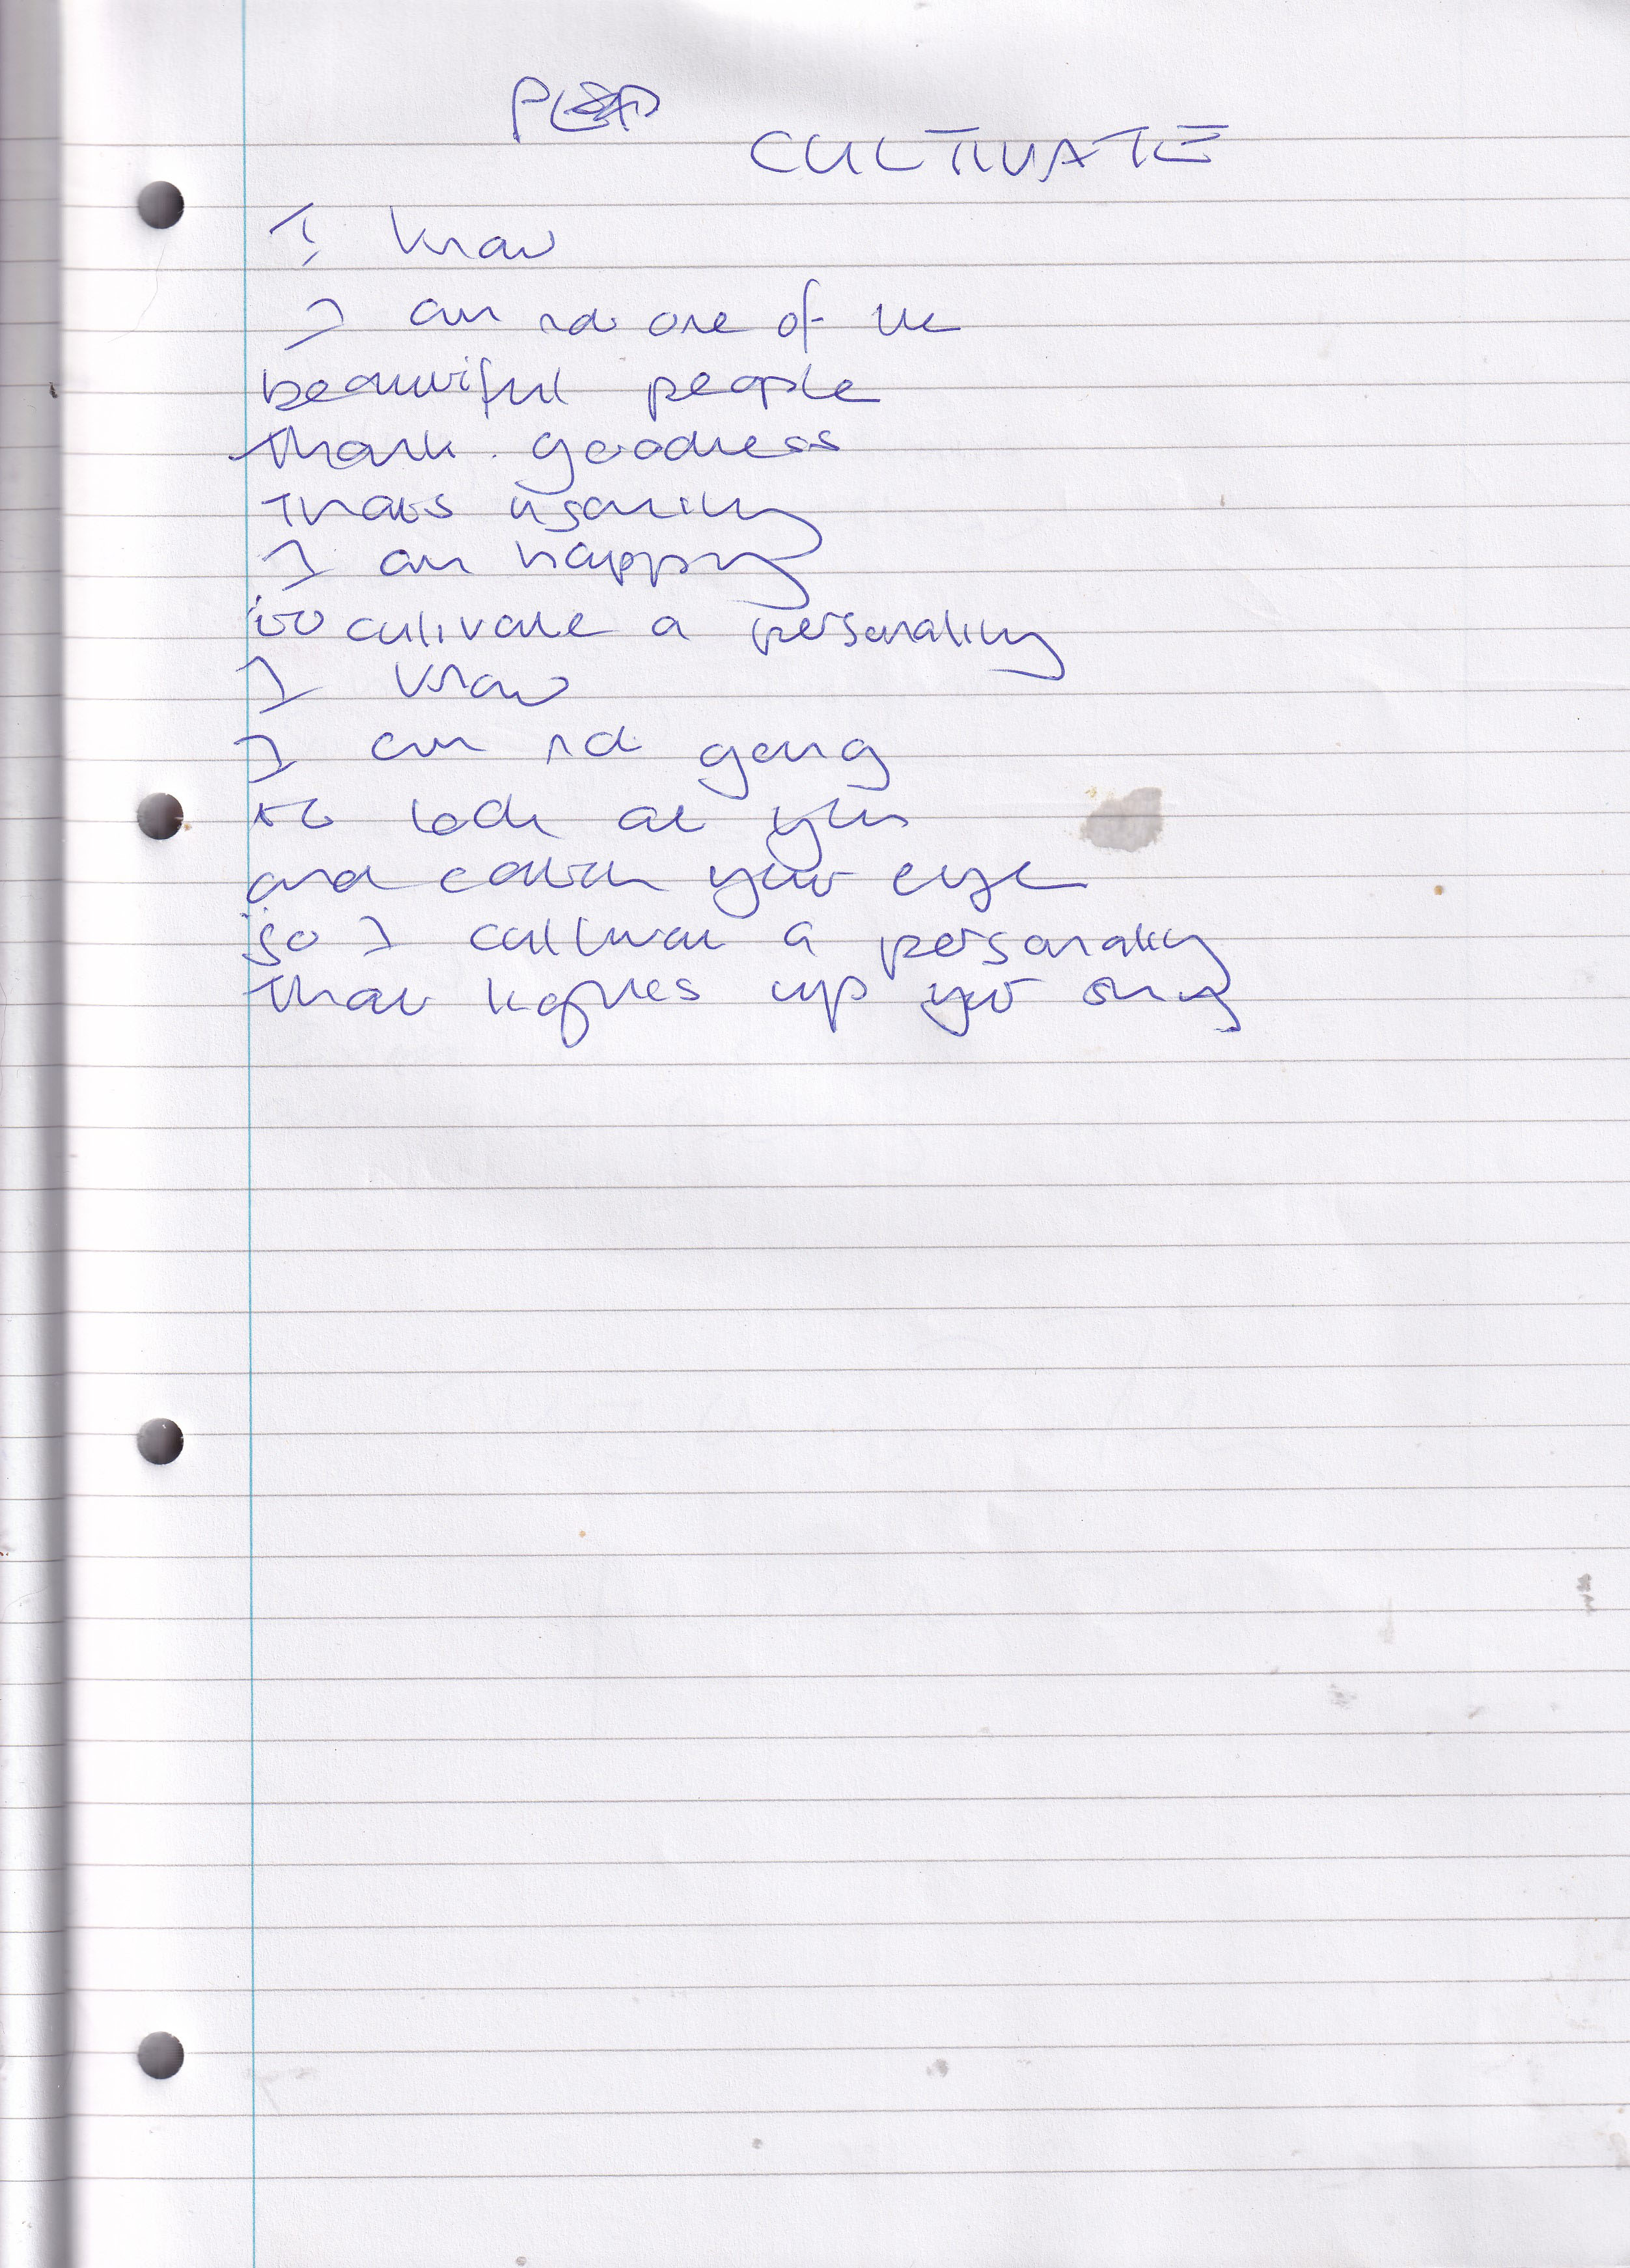 CULTIVATE
I know
I am not one of the
beautiful people
thank goodness
thats
I am happy
to cultivate a personality
I know
I am not going
to look at you
and catch your eye
so I cultivate a personality
that lights up your